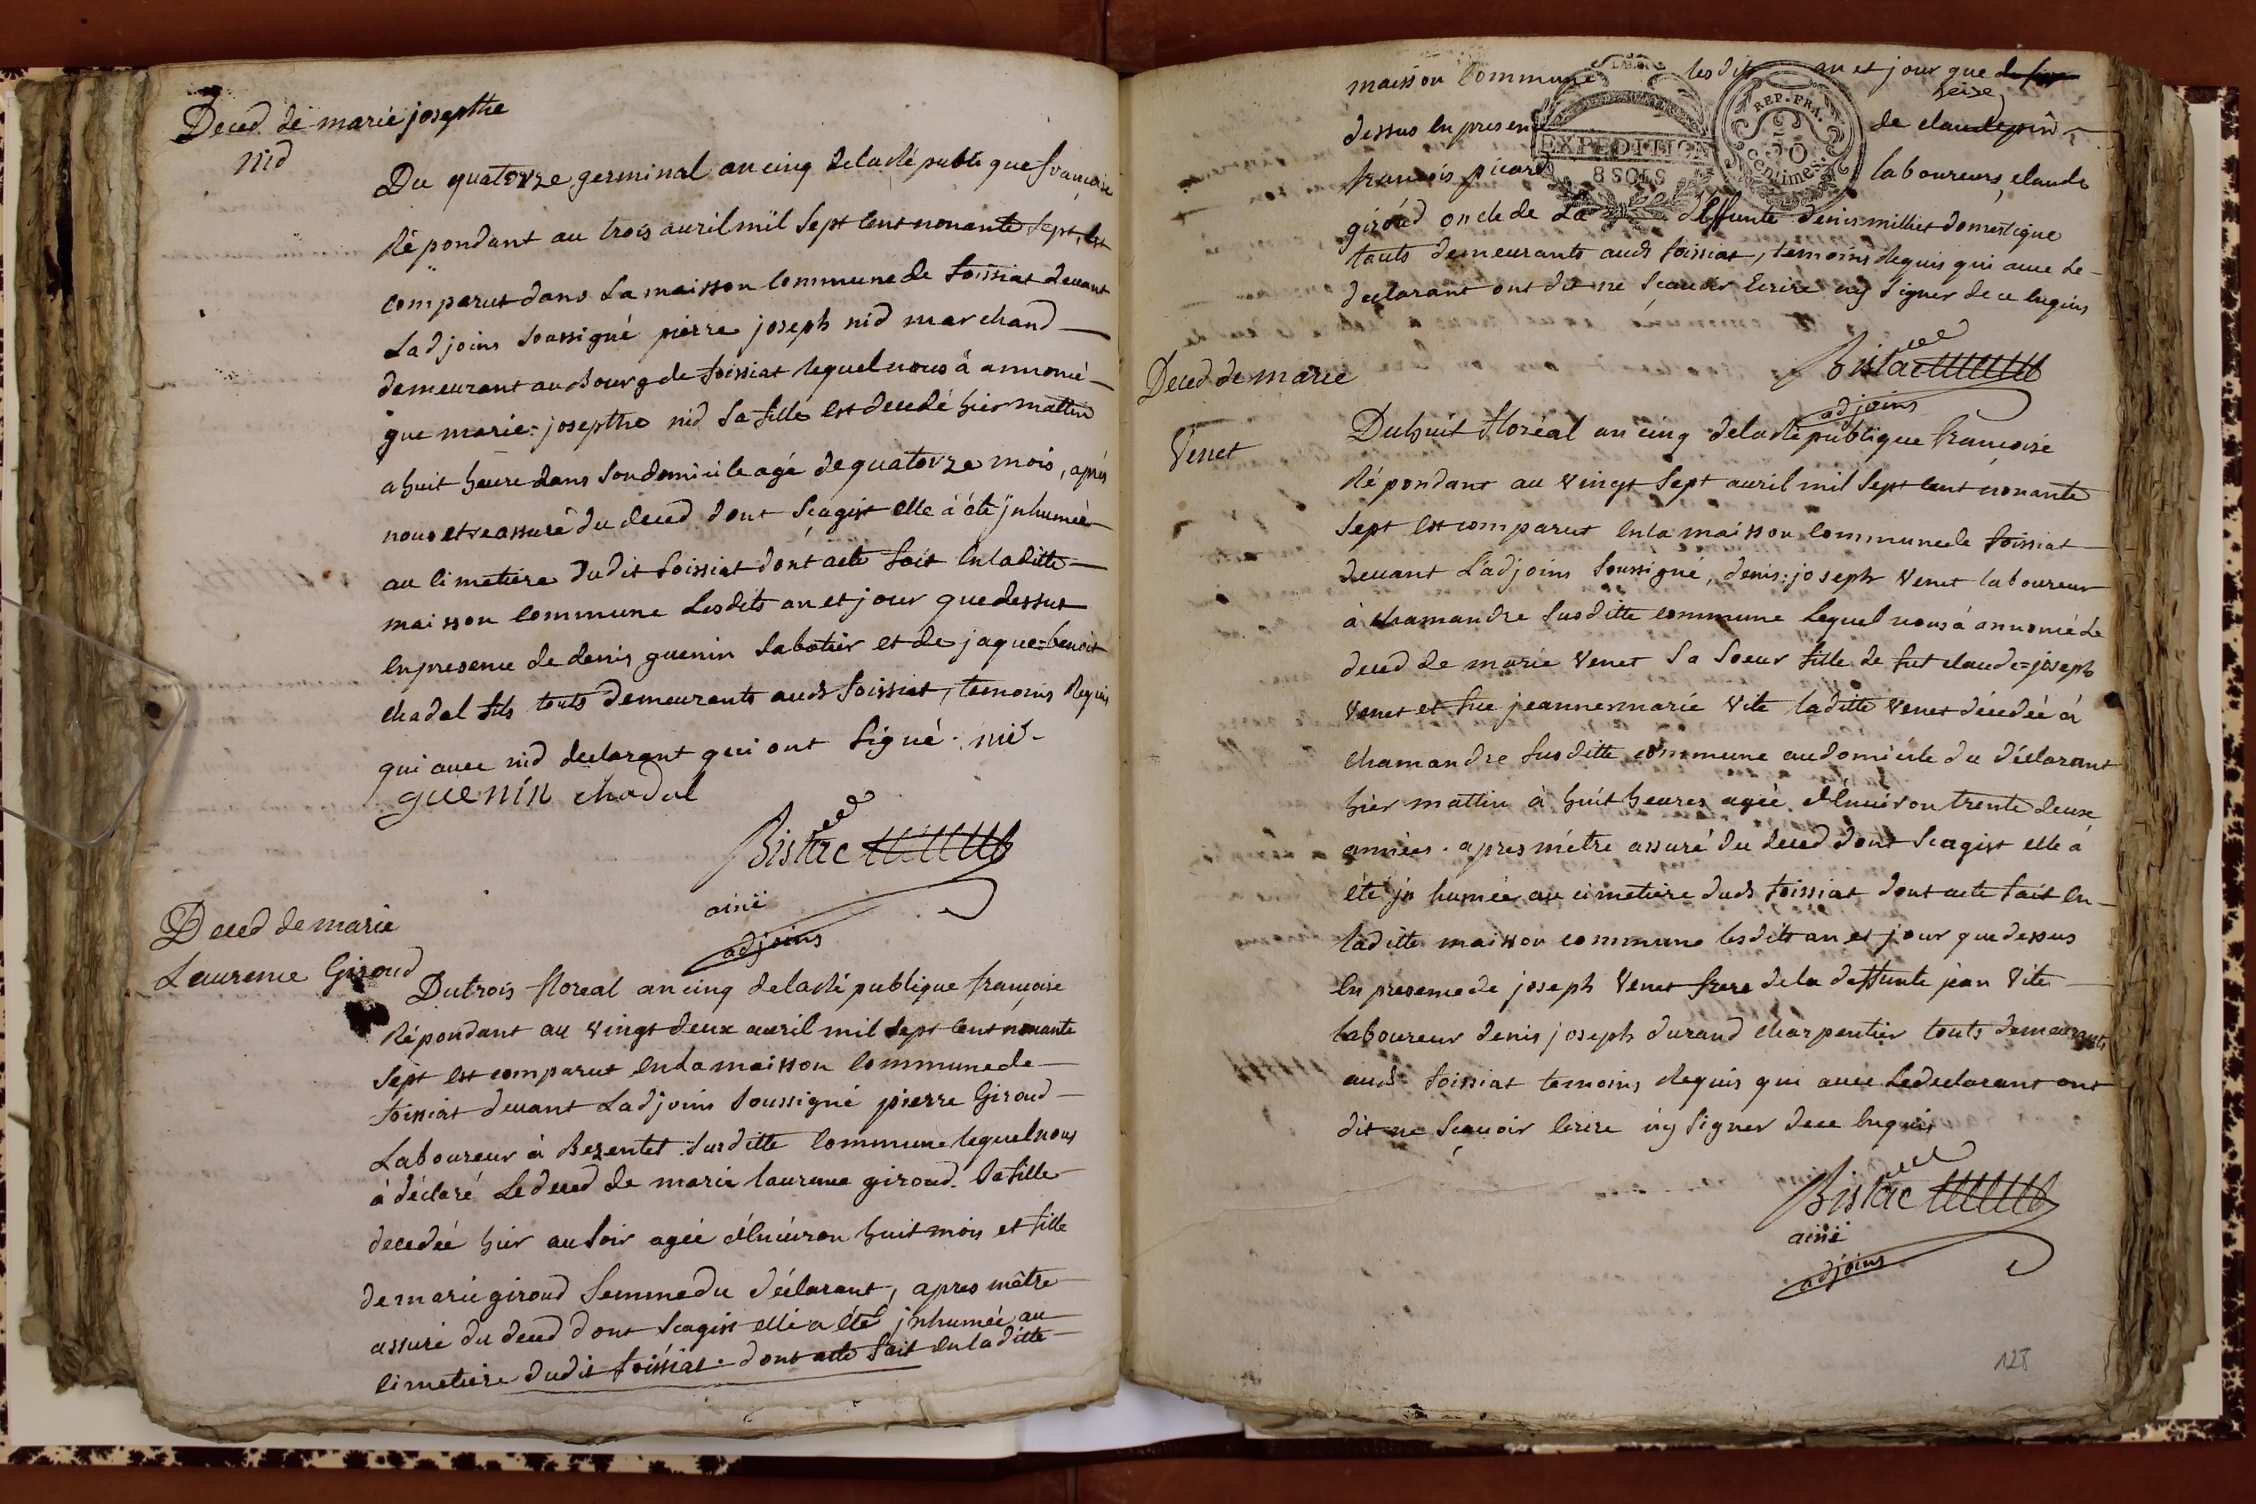 Deced de marie josepthe
nid
Du quatorze germinal an cinq de la Ré publi que francoise
Ré pondant au trois auril mil Sept Cent nonante Sept, Est
comparut dans La maisson Commune de foissiat deuant
Ladjoins Soussigné pierre joseph nid marchand
demeurant au Bourg de foissiat lequel nous à annoncé
que marie-josepthe nid Sa fille Est decedé hier mattin
a huit heure dans Son domicile agé de quatorze mois, aprés
nous etre assuré du deced dont Scagist elle à été jnhumée
au Cimetiere dudit foissiat dont acte fait En laditte
maisson Commune Lesdits an et jour que dessus
En presence de denis guenin Sabotier et de jaque-benoit
Chadal fils touts demeurants aud foissiat, temoins Requis
qui auec nid declarant qui ont Signé. nid.
guenin Chadal
Bistac
ainé
adjoins
Deced de marie
Laurence Giroud
Du trois floreal an cinq de la Ré publique françoise
Ré pondant au vingt deux auril mil Sept Cent nonante
Sept Est comparut En La maisson Commune de
foissiat deuant Ladjoins Soussigné pierre Giroud
Laboureur à Bezentet Susditte Commune lequel nous
à déclaré Le deced de marie laurence giroud Sa fille
decedée hier au Soir agée d'Enuiron huit mois et fille
de marie giroud femme du déclarant, apres mêtre
assuré du deced dont Scagist elle a été jnhumée au
Cimetiere dudit foissiat. dont acte fait En laditte
maisson Commune lesdits an et jour que
EXPEDITION
8 SOLS
REP. FRA.
50
centimes.
dessus En presence de claude
françois picard laboureurs, claude
giroud oncle de La deffunte denis milliet domestique
touts demeurants aud foissiat, temoins Requis qui auec Le
declarant ont dit ne Scauoir Ecrire ny Signer de ce Enquis
Bistac
adjoins
Deced de marie
Venet
Du huit floréal an cinq de la Ré publique françoise
Ré pondant au vingt Sept auril mil Sept Cent nonante
Sept Est comparut En la maisson Commune de foissiat
deuant L'adjoins Soussigné, denis-joseph Venet laboureur
à chamandre Susditte commune Lequel nous à annoncé Le
deced de marie Venet Sa Soeur fille de fut claude-joseph
Venet et fue jeanne marie Vite laditte Venet décedée à
chamandre Susditte commune au domicile du déclarant
hier mattin à huit heures agée d'Enuiron trente deux
années. apres métre assuré du deced dont Scagist elle à
été jn humée au cimetiere dud foissiat dont acte fait En
laditte maisson commune lesdits an et jour que dessus
En presence de joseph Venet frere de la deffunte jean Vite
laboureur denis joseph durand charpentier touts demeurants
aud foissiat temoins Requis qui auec Le declarant ont
dit ne Scauoir Ecrire ny Signer de ce Enquis
Bistac
ainé
adjoins
128